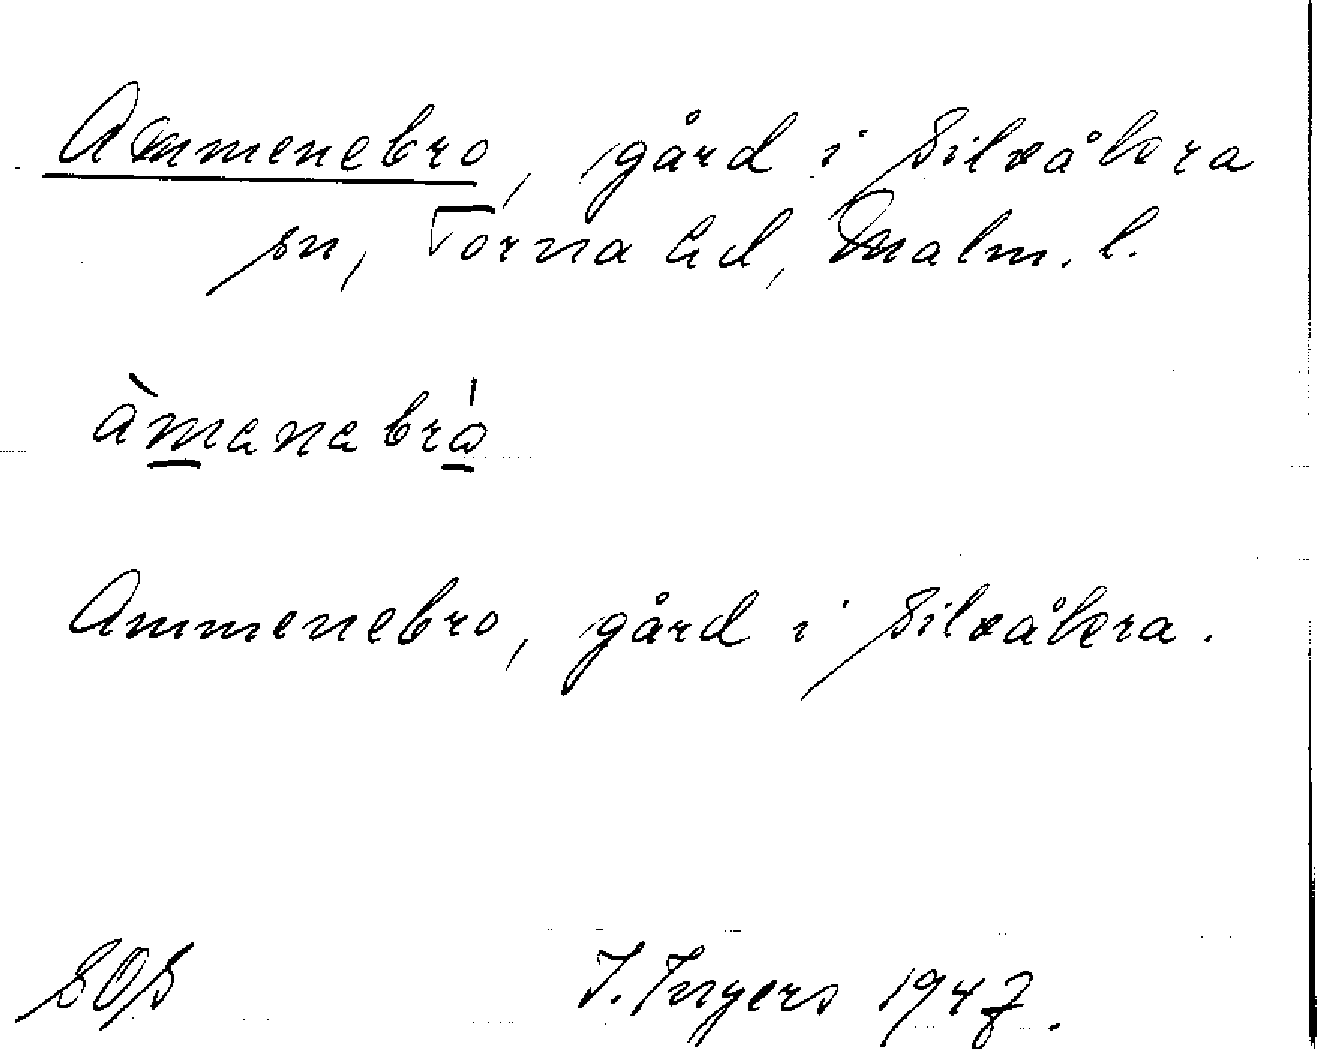 Ammenebro, gård i Silvåkra
sn, Torna hd, Malm. l.
àmanabró
Ammenebro, gård i Silvåkra.
SOS I. Ingers 1947.